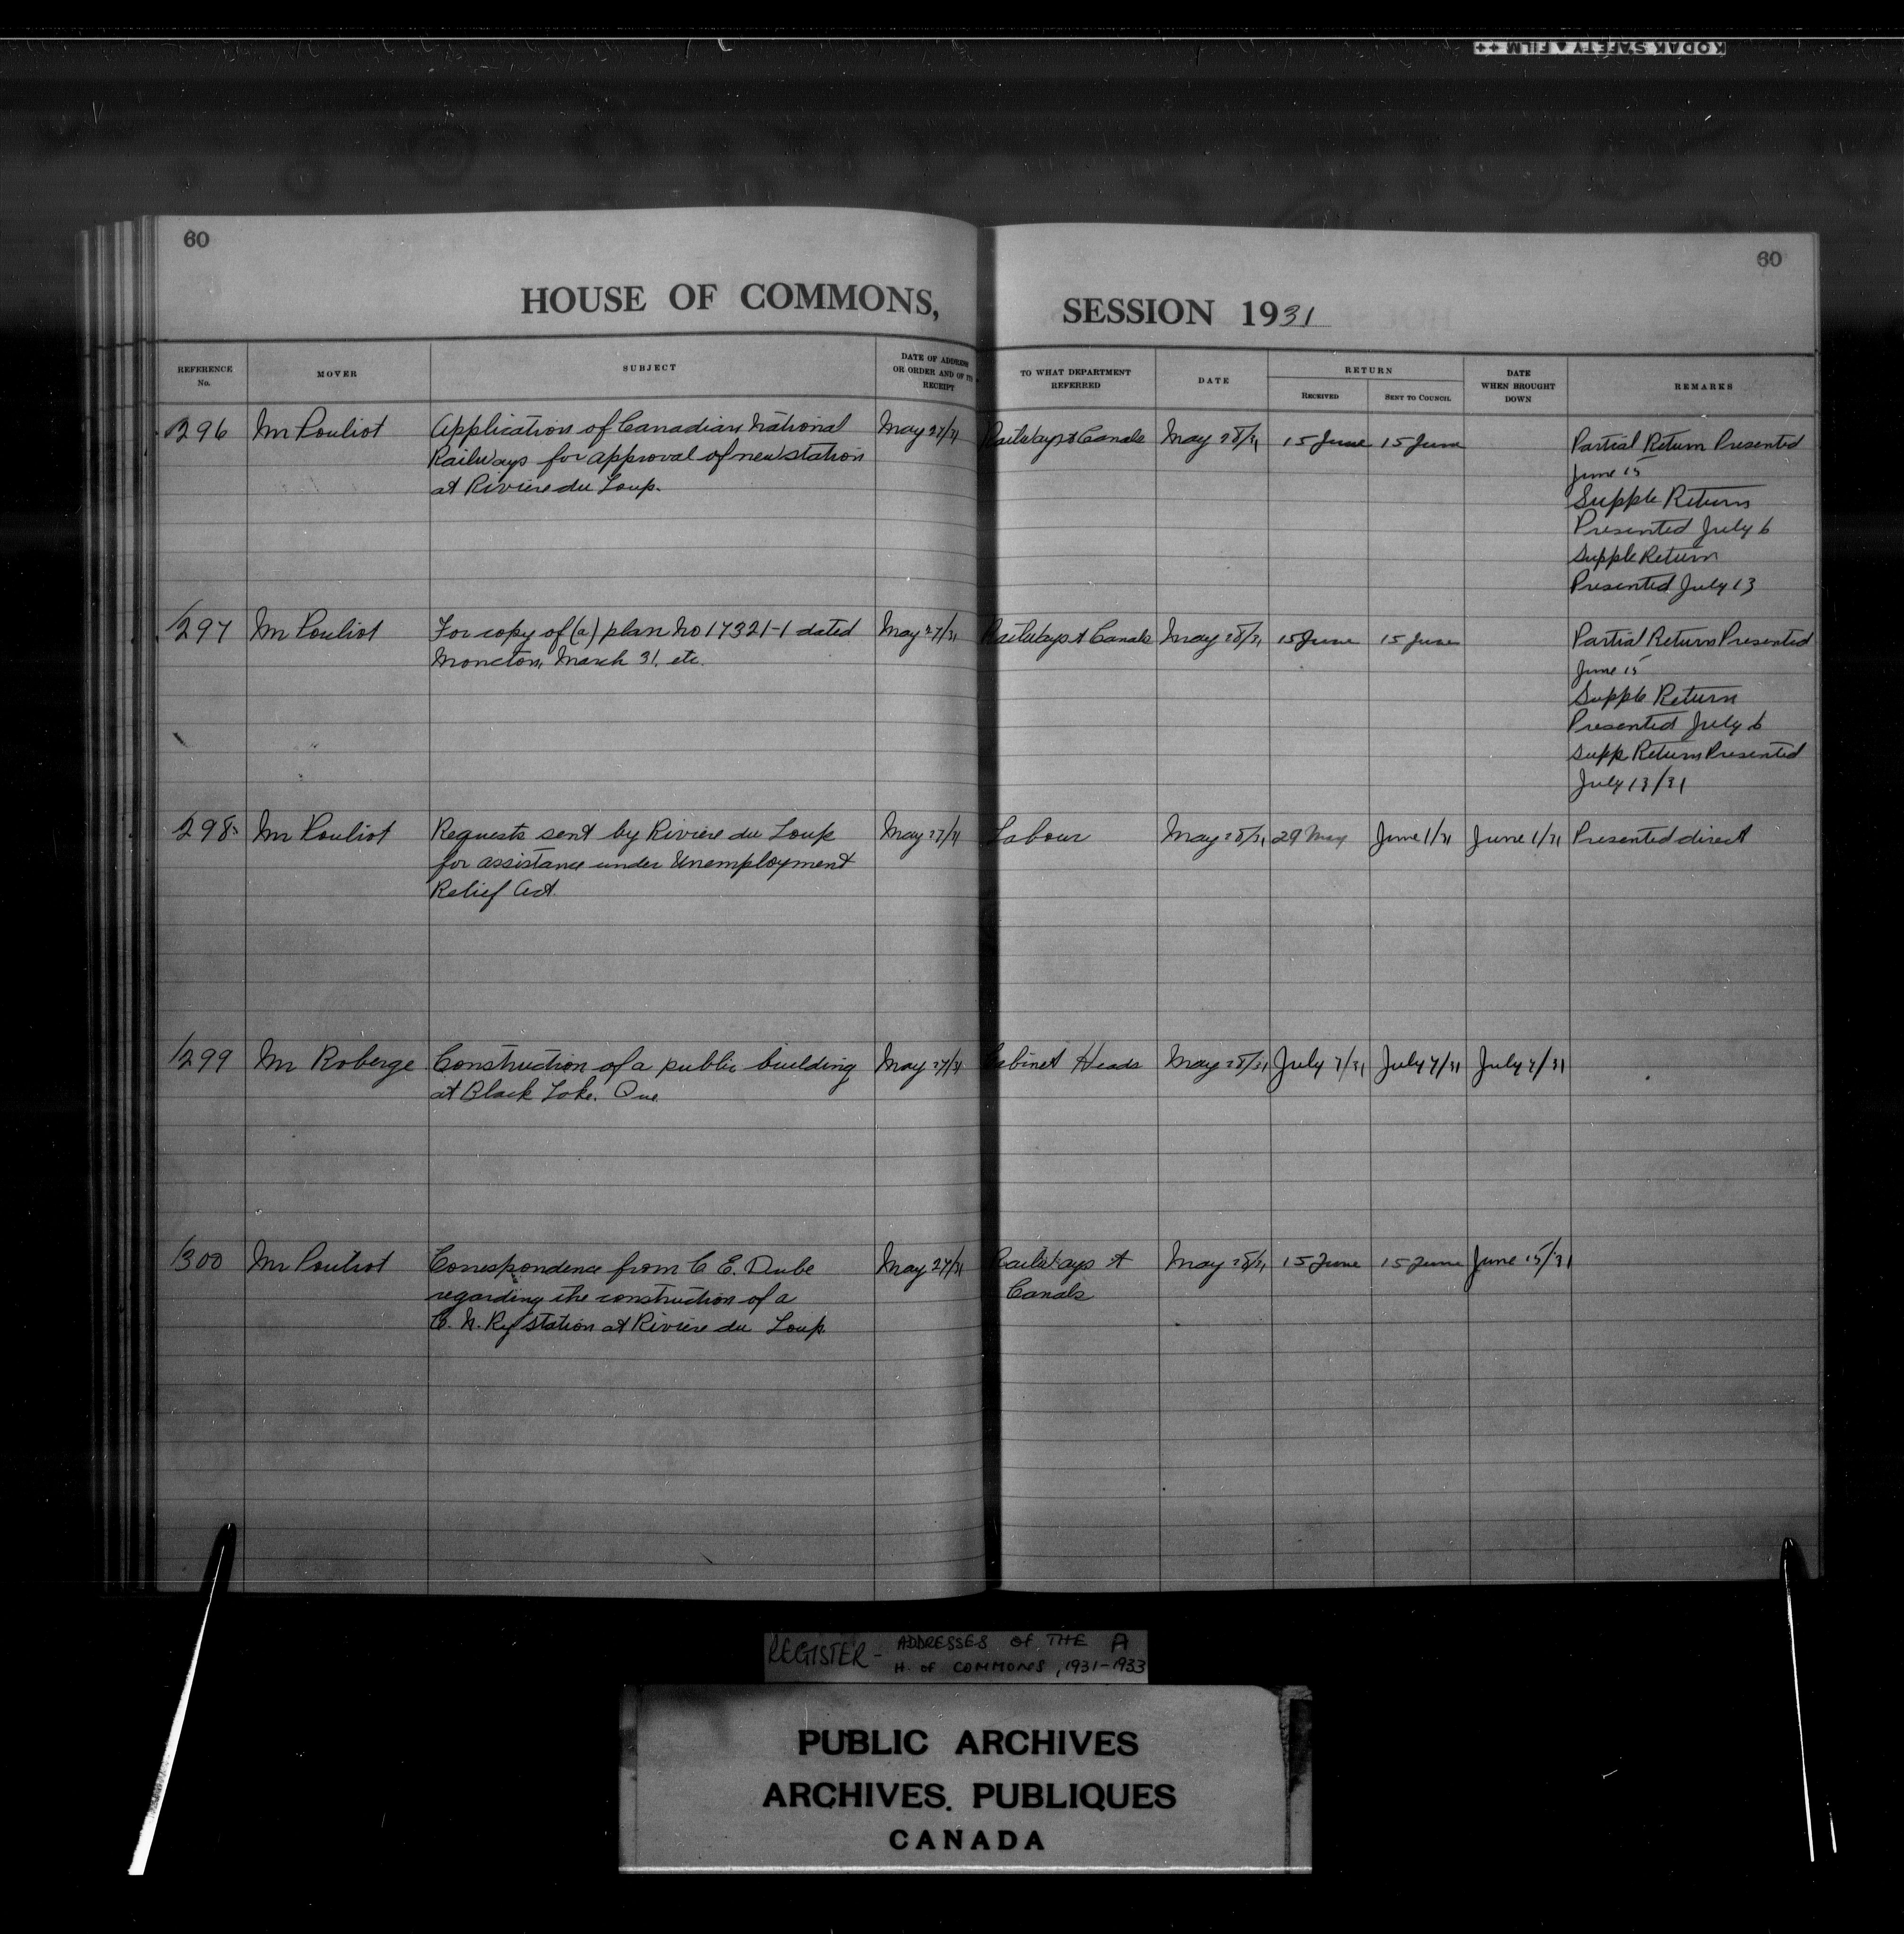 KODAK SAFETY FILM
60
60
HOUSE OF COMMONS,
SESSION 1931
REFERENCE No.
MOVER
SUBJECT
DATE OF ADDRESS OR ORDER AND OF ITS RECEIPT
TO WHAT DEPARTMENT REFERRED
DATE
RETURN
RECEIVED
SENT TO COUNCIL
DATE WHEN BROUGHT DOWN
REMARKS
296 Mr Pouliot Application of Canadian National May 27/31 Railways & Canals May 28/31 15 June 15 June Partial Return Presented
Railways for approval of new station June 15
at Riviere du Loup. Supple Return
Presented July 6
Supple Return
Presented July 13
297 Mr Pouliot For copy of (a) plan No 17321-1 dated May 27/31 Railways & Canals May 28/31 15 June 15 June Partial Return Presented
Moncton, March 31. etc. June 15
Supple Return
Presented July 6
Supp Return Presented
July 13/31
298 Mr Pouliot Requests sent by Riviere du Loup May 27/31 Labour May 28/31 29 May June 1/31 June 1/31 Presented direct
for assistance under Unemployment
Relief Act.
299 Mr Roberge Construction of a public building May 27/31 Cabinet Heads May 28/31 July 7/31 July 7/31 July 7/31
at Black Lake. Que.
300 Mr Pouliot Correspondence from C E. Dube May 27/31 Railways & May 28/31 15 June 15 June June 15/31
regarding the construction of a Canals
C. N. Ry station at Riviere du Loup.
REGISTER - ADDRESSES OF THE A
H. of COMMONS, 1931-1933
PUBLIC ARCHIVES
ARCHIVES PUBLIQUES
CANADA